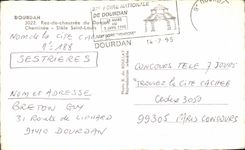 DOURDAN
3022. Rez-de-chaussée du Donjon
Cheminée - Stèle Saint-Louis
NOM DE LA CITE CACHEE
N° 188
SESTRIERES
NOM ET ADRESSE
BRETON GUY
31 Route de
91410 DOURDAN
FOIRE NATIONALE
DE DOURDAN
DOURDAN
14-2-95
CONCOURS TELE 7 JOURS
TROUVEZ LA CITE CACHEE
Cedex 3050
99305 PARIS CONCOURS